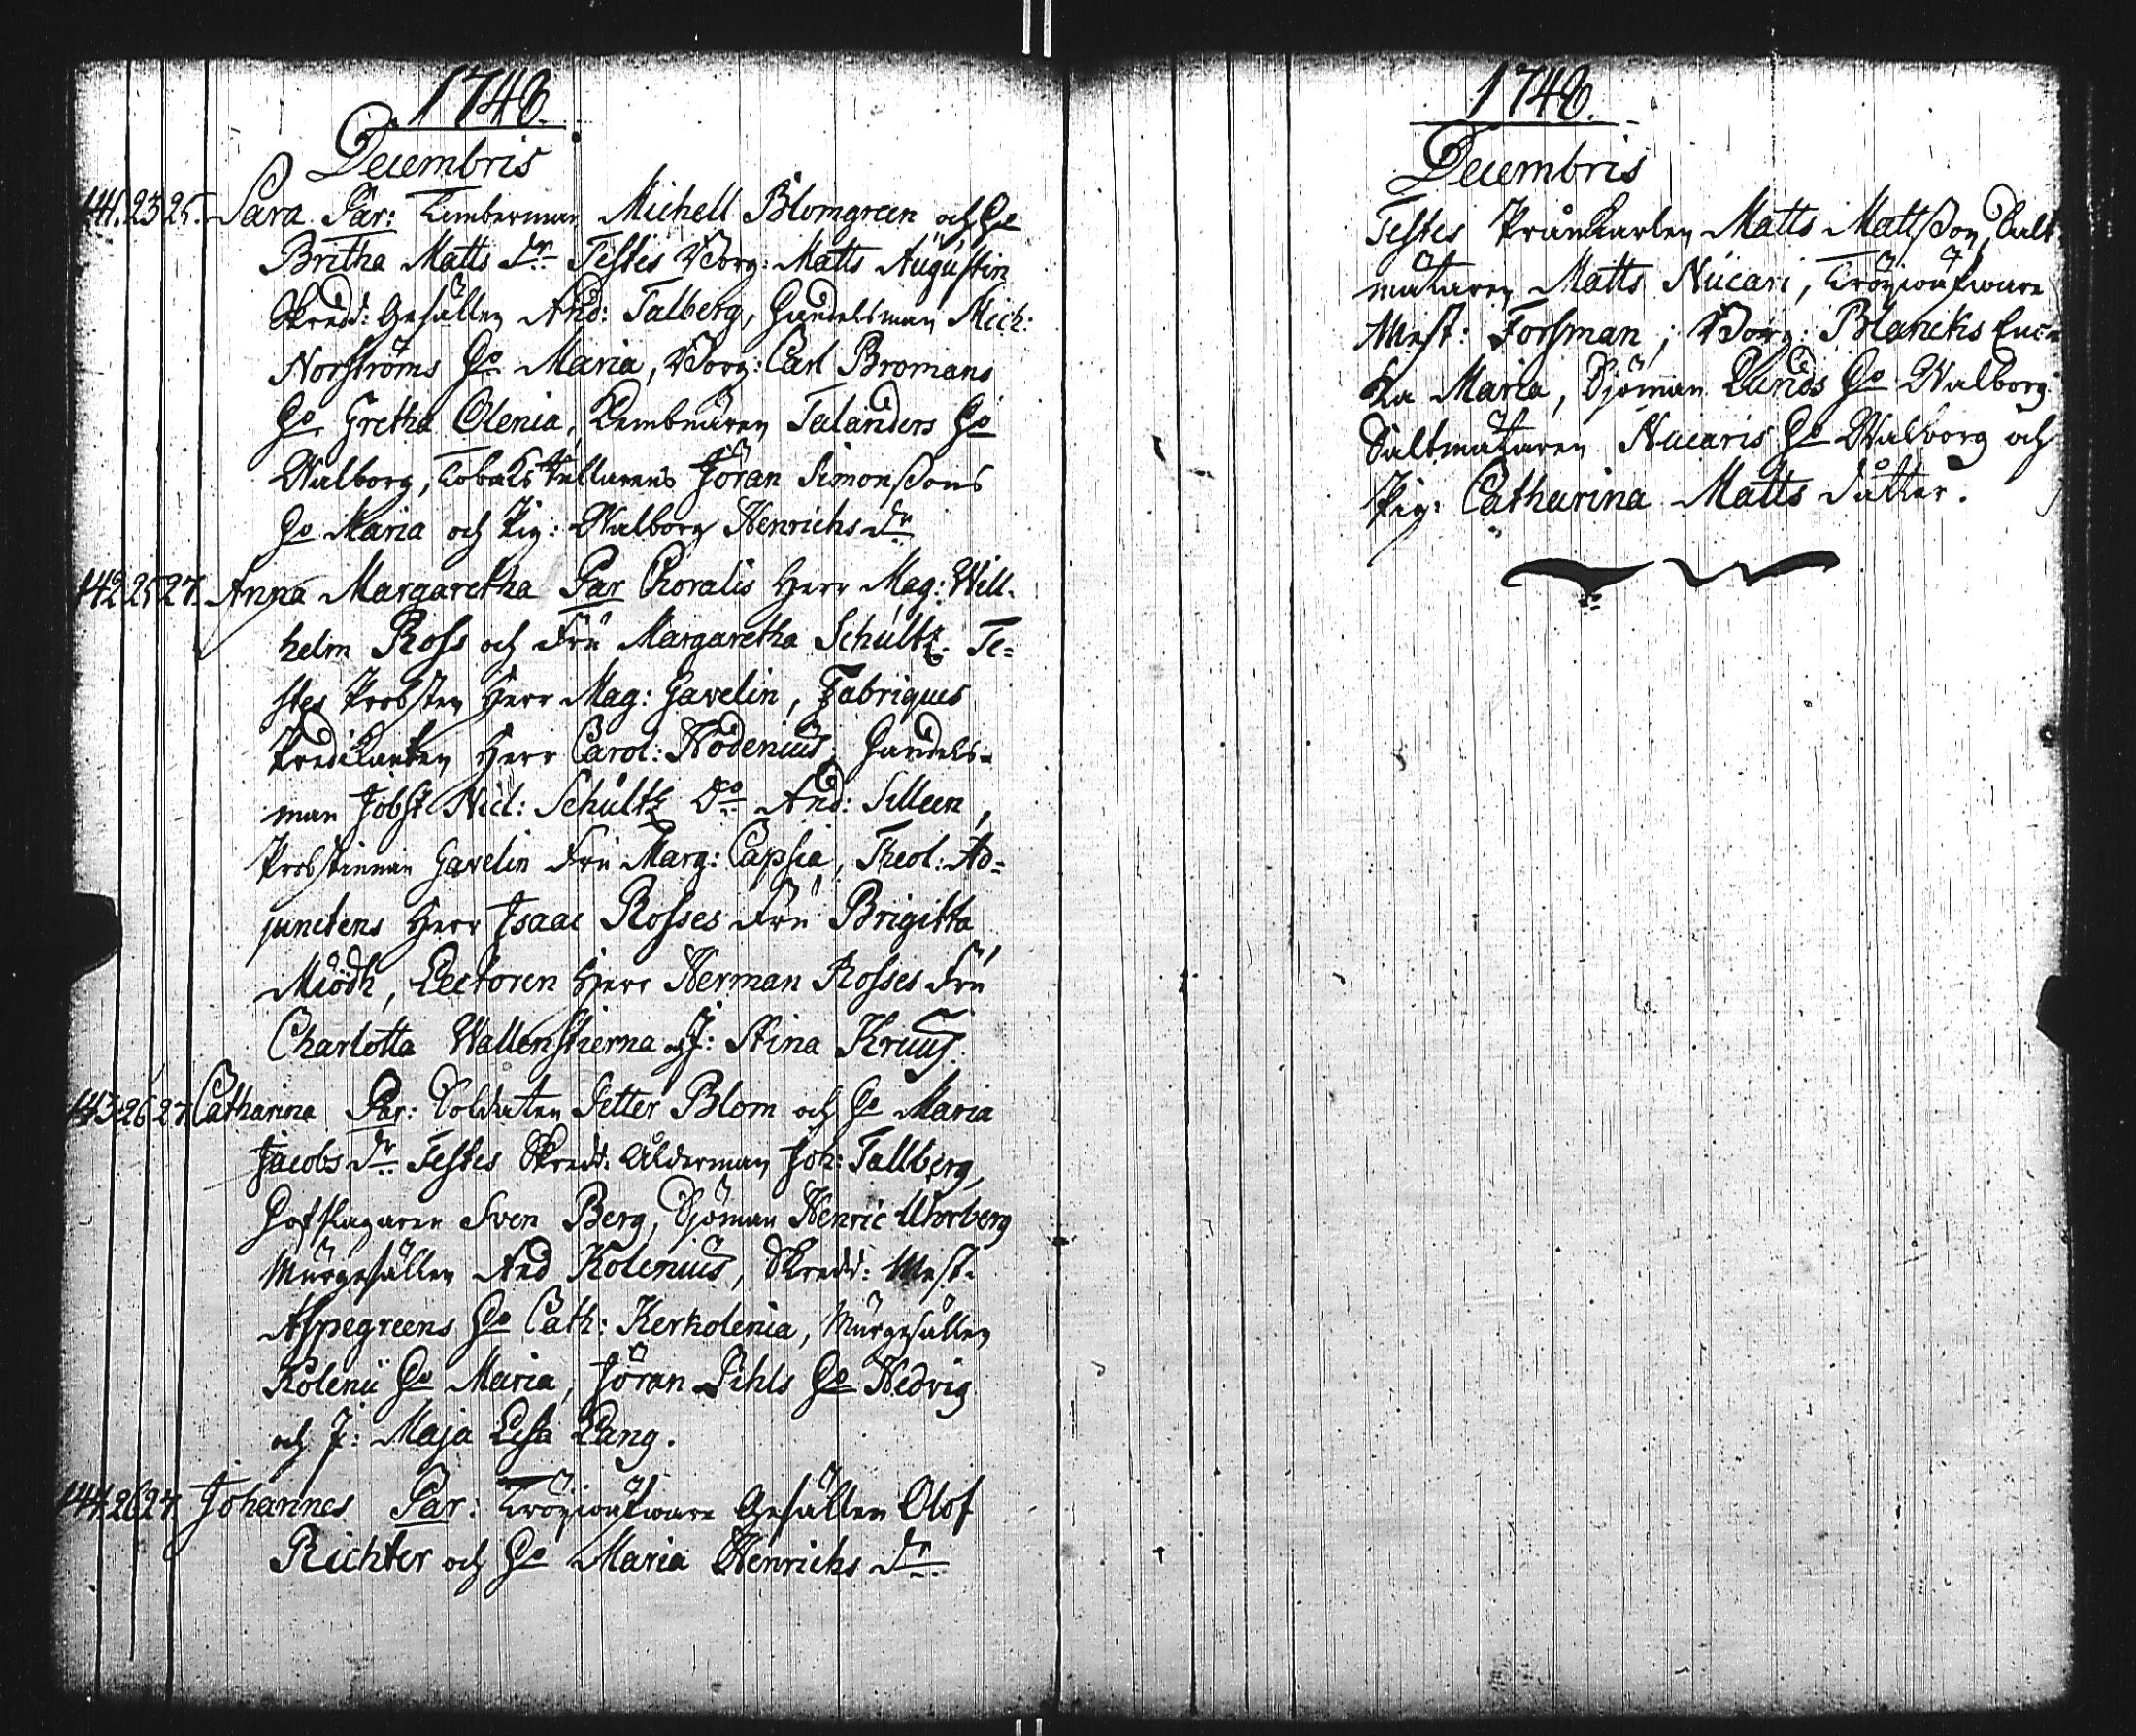 1748.
Decembris
141. 23 25. Sara. Par: Timberman Michell Blomgreen och H:o
Britha Matts d:r Testes Borg: Matts Augustin
Skredd: Gesällen And: Talberg, Handelsman Mich:
Norströms H:o Maria, Borg: Carl Bromans
H:o Gretha Olenia, Talanders H:o
Walborg, Tobaks Jöran Simonssons
H:o Maria och Pig: Walborg Henrichs d:r
142 25 27. Anna Margaretha Par Choralis Herr Mag: Will-
helm Ross och Fru Margaretha Schultz. Te=
stes Probsten Herr Mag: Gavelin, Fabriques
Predikanten Herr Carol: Nodenius, Handels=
man Jobst Nicl: Schultz D:o And: Silleen,
Probstinnan Gavelin Fru Marg: Capsia, Theol: Ad=
junctens Herr Isaac Rosses Fru Brigitta
Miödh, Lectoren Herr Herman Rosses Fru
Charlotta Wallenstierna och J: Stina Kruus.
143 26 27. Catharina Par: Soldaten Petter Blom och H:o Maria
Jacobs d:r Testes Skredd: Ålderman Joh: Tallberg,
Hofslagaren Sven Berg, Sjöman Henric Uhrberg
Murgesällen And Kolenius, Skredd: Mest.
Aspegreens H:o Cath: Kerkolenia, Murgesällen
Kolenii H:o Maria, Jöran Pihls H:o Hedvig
och J: Maja Lisa Lang.
144. 26 27. Johannes Par: Tröyiväfware Gesällen Olof
Richter och H:o Maria Henrichs d:r
1748.
Decembris
Testes Prånkarlen Matts Mattsson, Salt
mätaren Matts Nucari, Tröyiväfware
Mest: Forssman, Borg: Blancks Enc=
ka Maria, Sjöman Lunds H:o Walborg
Saltmätaren Nucaris H:o Walborg och
Pig: Catharina Matts dåtter.